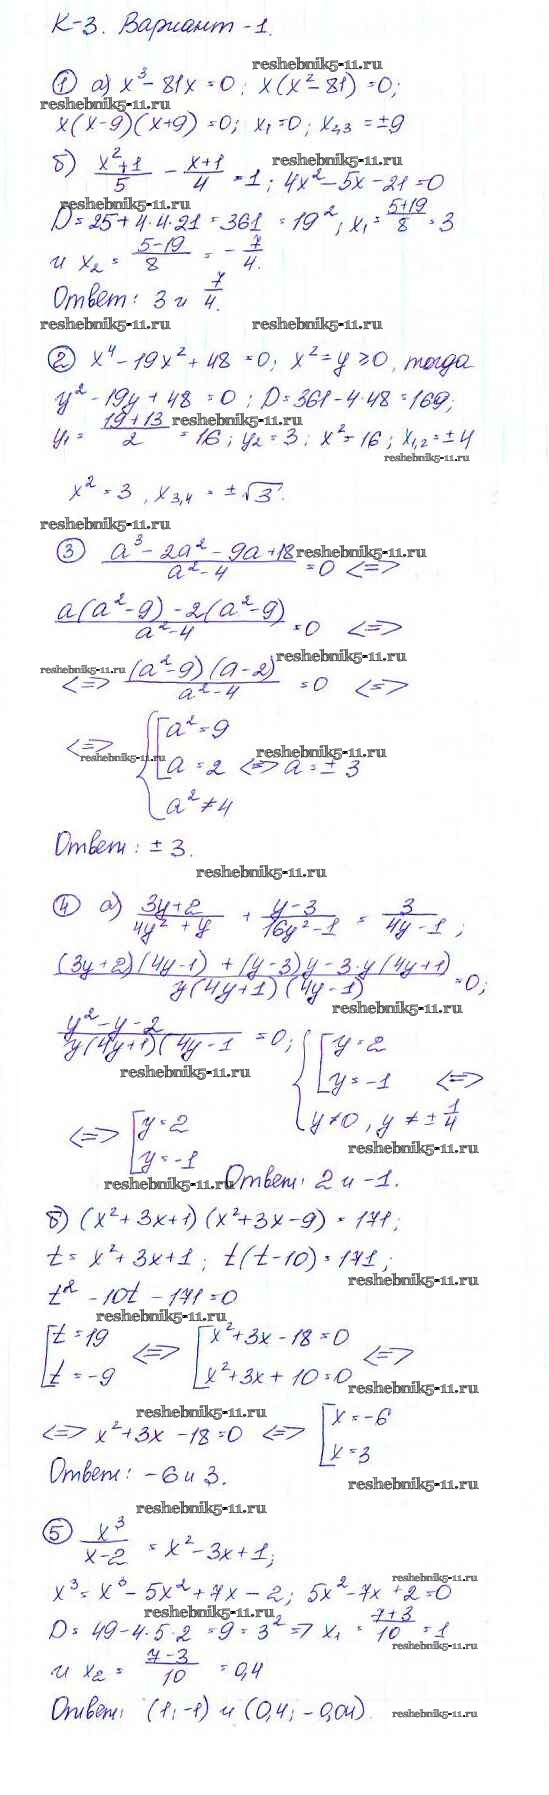 К-3. Вариант-1.
reshebnik5-11.ru
① а) x³ - 81x = 0; x(x² - 81) = 0;
reshebnik5-11.ru
x(x-9)(x+9) = 0; x₁ = 0; x₂,₃ = ±9
б) (x²+1)/5 - (x+1)/4 = 1; 4x² - 5x - 21 = 0
reshebnik5-11.ru
reshebnik5-11.ru
D = 25 + 4·4·21 = 361 = 19²; x₁ = (5+19)/8 = 3
и x₂ = (5-19)/8 = -7/4.
Ответ: 3 и 7/4.
reshebnik5-11.ru reshebnik5-11.ru
② x⁴ - 19x² + 48 = 0; x² = y ≥ 0, тогда
y² - 19y + 48 = 0; D = 361 - 4·48 = 169;
reshebnik5-11.ru
y₁ = (19+13)/2 = 16; y₂ = 3; x² = 16; x₁,₂ = ±4
reshebnik5-11.ru
x² = 3, x₃,₄ = ±√3.
reshebnik5-11.ru
③ (a³ - 2a² - 9a + 18)/(a² - 4) = 0 <=>
reshebnik5-11.ru
(a(a²-9) - 2(a²-9))/(a²-4) = 0 <=>
reshebnik5-11.ru
reshebnik5-11.ru
<=> ((a²-9)(a-2))/(a²-4) = 0 <=>
<=> { [ a² = 9
reshebnik5-11.ru reshebnik5-11.ru
a = 2 <=> a = ±3
a² ≠ 4
Ответ: ±3.
reshebnik5-11.ru
④ а) (3y+2)/(4y²+y) + (y-3)/(16y²-1) = 3/(4y-1);
((3y+2)(4y-1) + (y-3)y - 3·y(4y+1))/(y(4y+1)(4y-1) = 0;
reshebnik5-11.ru
(y²-y-2)/(y(4y+1)(4y-1 = 0; { [ y = 2
reshebnik5-11.ru
y = -1 <=>
y ≠ 0, y ≠ ±1/4
reshebnik5-11.ru
<=> [ y = 2
y = -1 Ответ: 2 и -1.
reshebnik5-11.ru
б) (x²+3x+1)(x²+3x-9) = 171;
t = x²+3x+1; t(t-10) = 171;
reshebnik5-11.ru
t² - 10t - 171 = 0
reshebnik5-11.ru
[ t = 19 <=> [ x²+3x-18 = 0 <=>
t = -9 x²+3x+10 = 0
reshebnik5-11.ru
reshebnik5-11.ru
<=> x²+3x-18 = 0 <=> [ x = -6
x = 3
Ответ: -6 и 3.
reshebnik5-11.ru
reshebnik5-11.ru
⑤ x³/(x-2) = x² - 3x + 1;
reshebnik5-11.ru
x³ = x³ - 5x² + 7x - 2; 5x² - 7x + 2 = 0
reshebnik5-11.ru
D = 49 - 4·5·2 = 9 = 3² => x₁ = (7+3)/10 = 1
reshebnik5-11.ru
и x₂ = (7-3)/10 = 0,4
Ответ: (1; -1) и (0,4; -0,04).
reshebnik5-11.ru